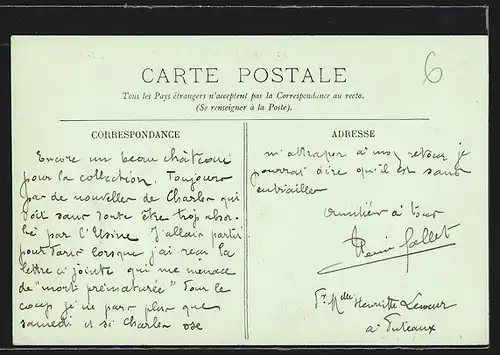 6
CARTE POSTALE
Tous les Pays étrangers n'acceptent pas la Correspondance au recto.
(Se renseigner à la Poste).
CORRESPONDANCE
Encore un beau château
pour la collection. Toujours
pas de nouvelles de Charles qui
doit sans doute être trop absor
bé par l'Usine J'allais partir
pour Paris lorsque j'ai reçu la
lettre ci jointe qui me menace
de "mort prématurée" Pour le
coup je ne pars plus que
samedi et si Charles ose
ADRESSE
m'attraper à mon retour je
pourrai dire qu'il est sans
entrailles
Amitiés à tous
Gallet
Pr Melle Henriette
à Puteaux